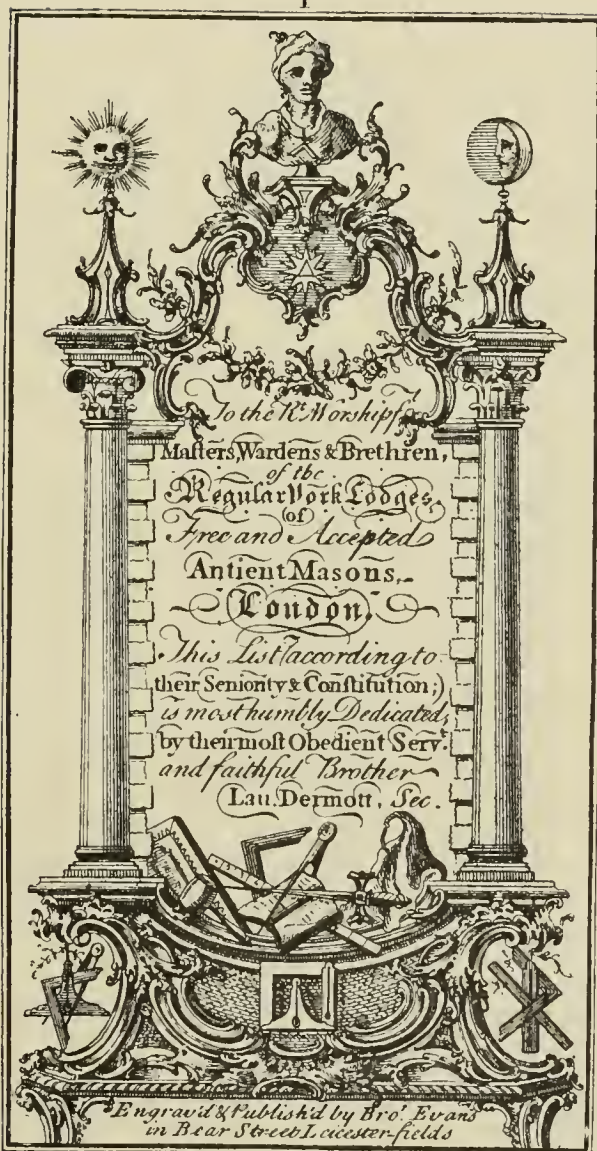 To the Rt. Worshipfl.
Maſters, Wardens & Brethren,
of the
Regular York Lodges,
of
Free and Accepted
Antient Masons,
London.
This List (according to
their Seniority & Conſtitution;)
is most humbly Dedicated,
by their moſt Obedient Servt.
and faithful Brother
Lau. Dermott, Sec.
Engrav'd & Publish'd by Bror. Evans
in Bear Street Leicester-fields